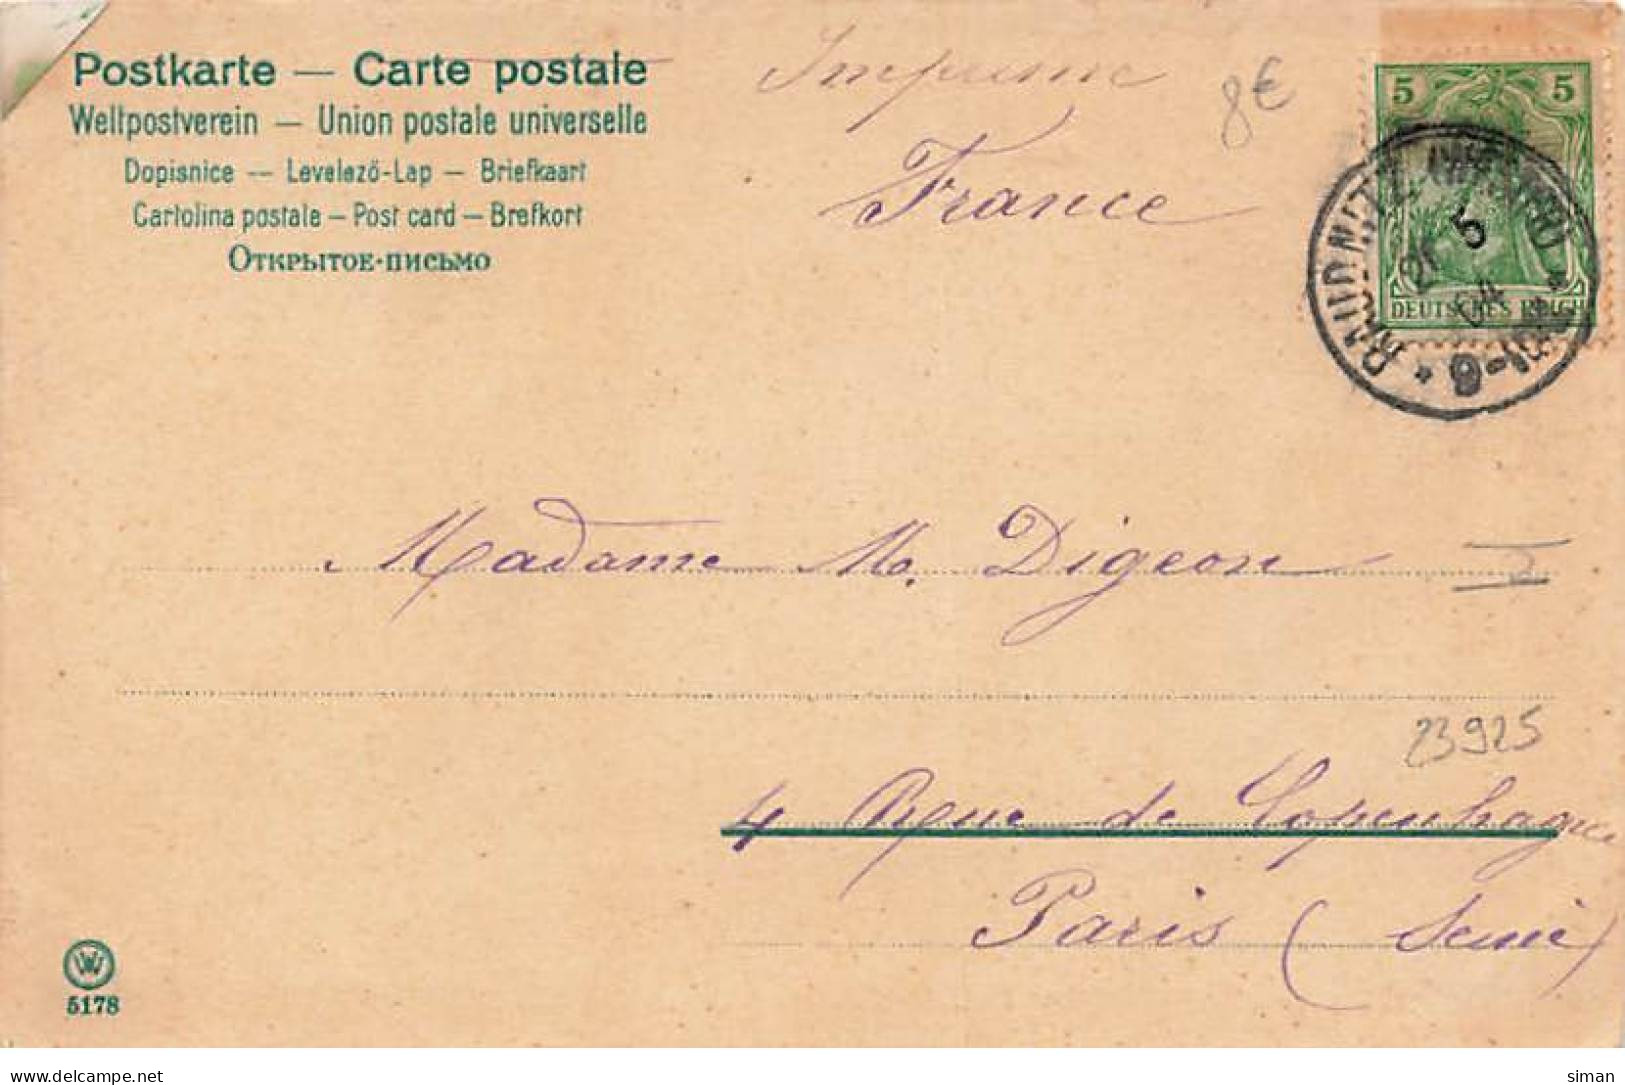 Postkarte — Carte postale
Weltpostverein — Union postale universelle
Dopisnice — Levelező-Lap — Briefkaart
Cartolina postale — Post card — Brefkort
Открытое-письмо
Imprimé
France
8€
5 5
DEUTSCHES REICH
RAUDNITZ
21 5 04
Madame M. Digeon
23925
4 Rue de Copenhague
Paris (Seine)
W
5178
www.delcampe.net
siman